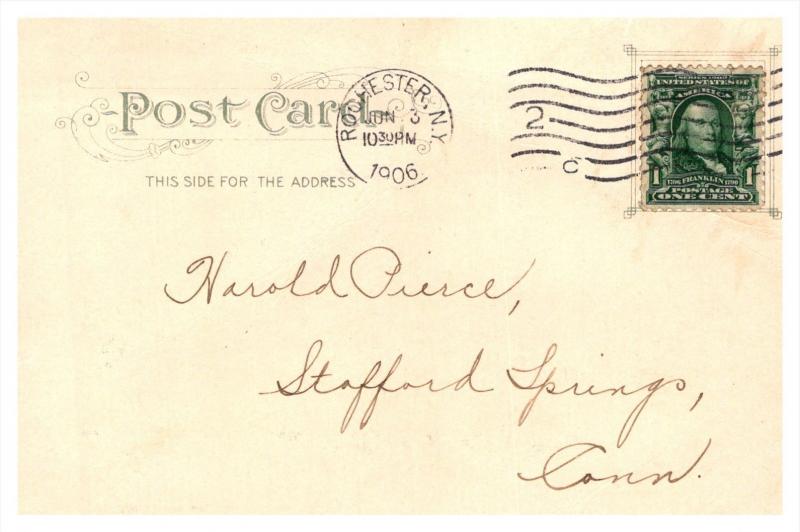 Post Card
THIS SIDE FOR THE ADDRESS
ROCHESTER, N.Y.
JUN 3
10 30 PM
1906
2
C
SERIES 1902
UNITED STATES OF
AMERICA
1 1706 FRANKLIN 1790 1
POSTAGE
ONE CENT
Harold Pierce,
Stafford Springs,
Conn.